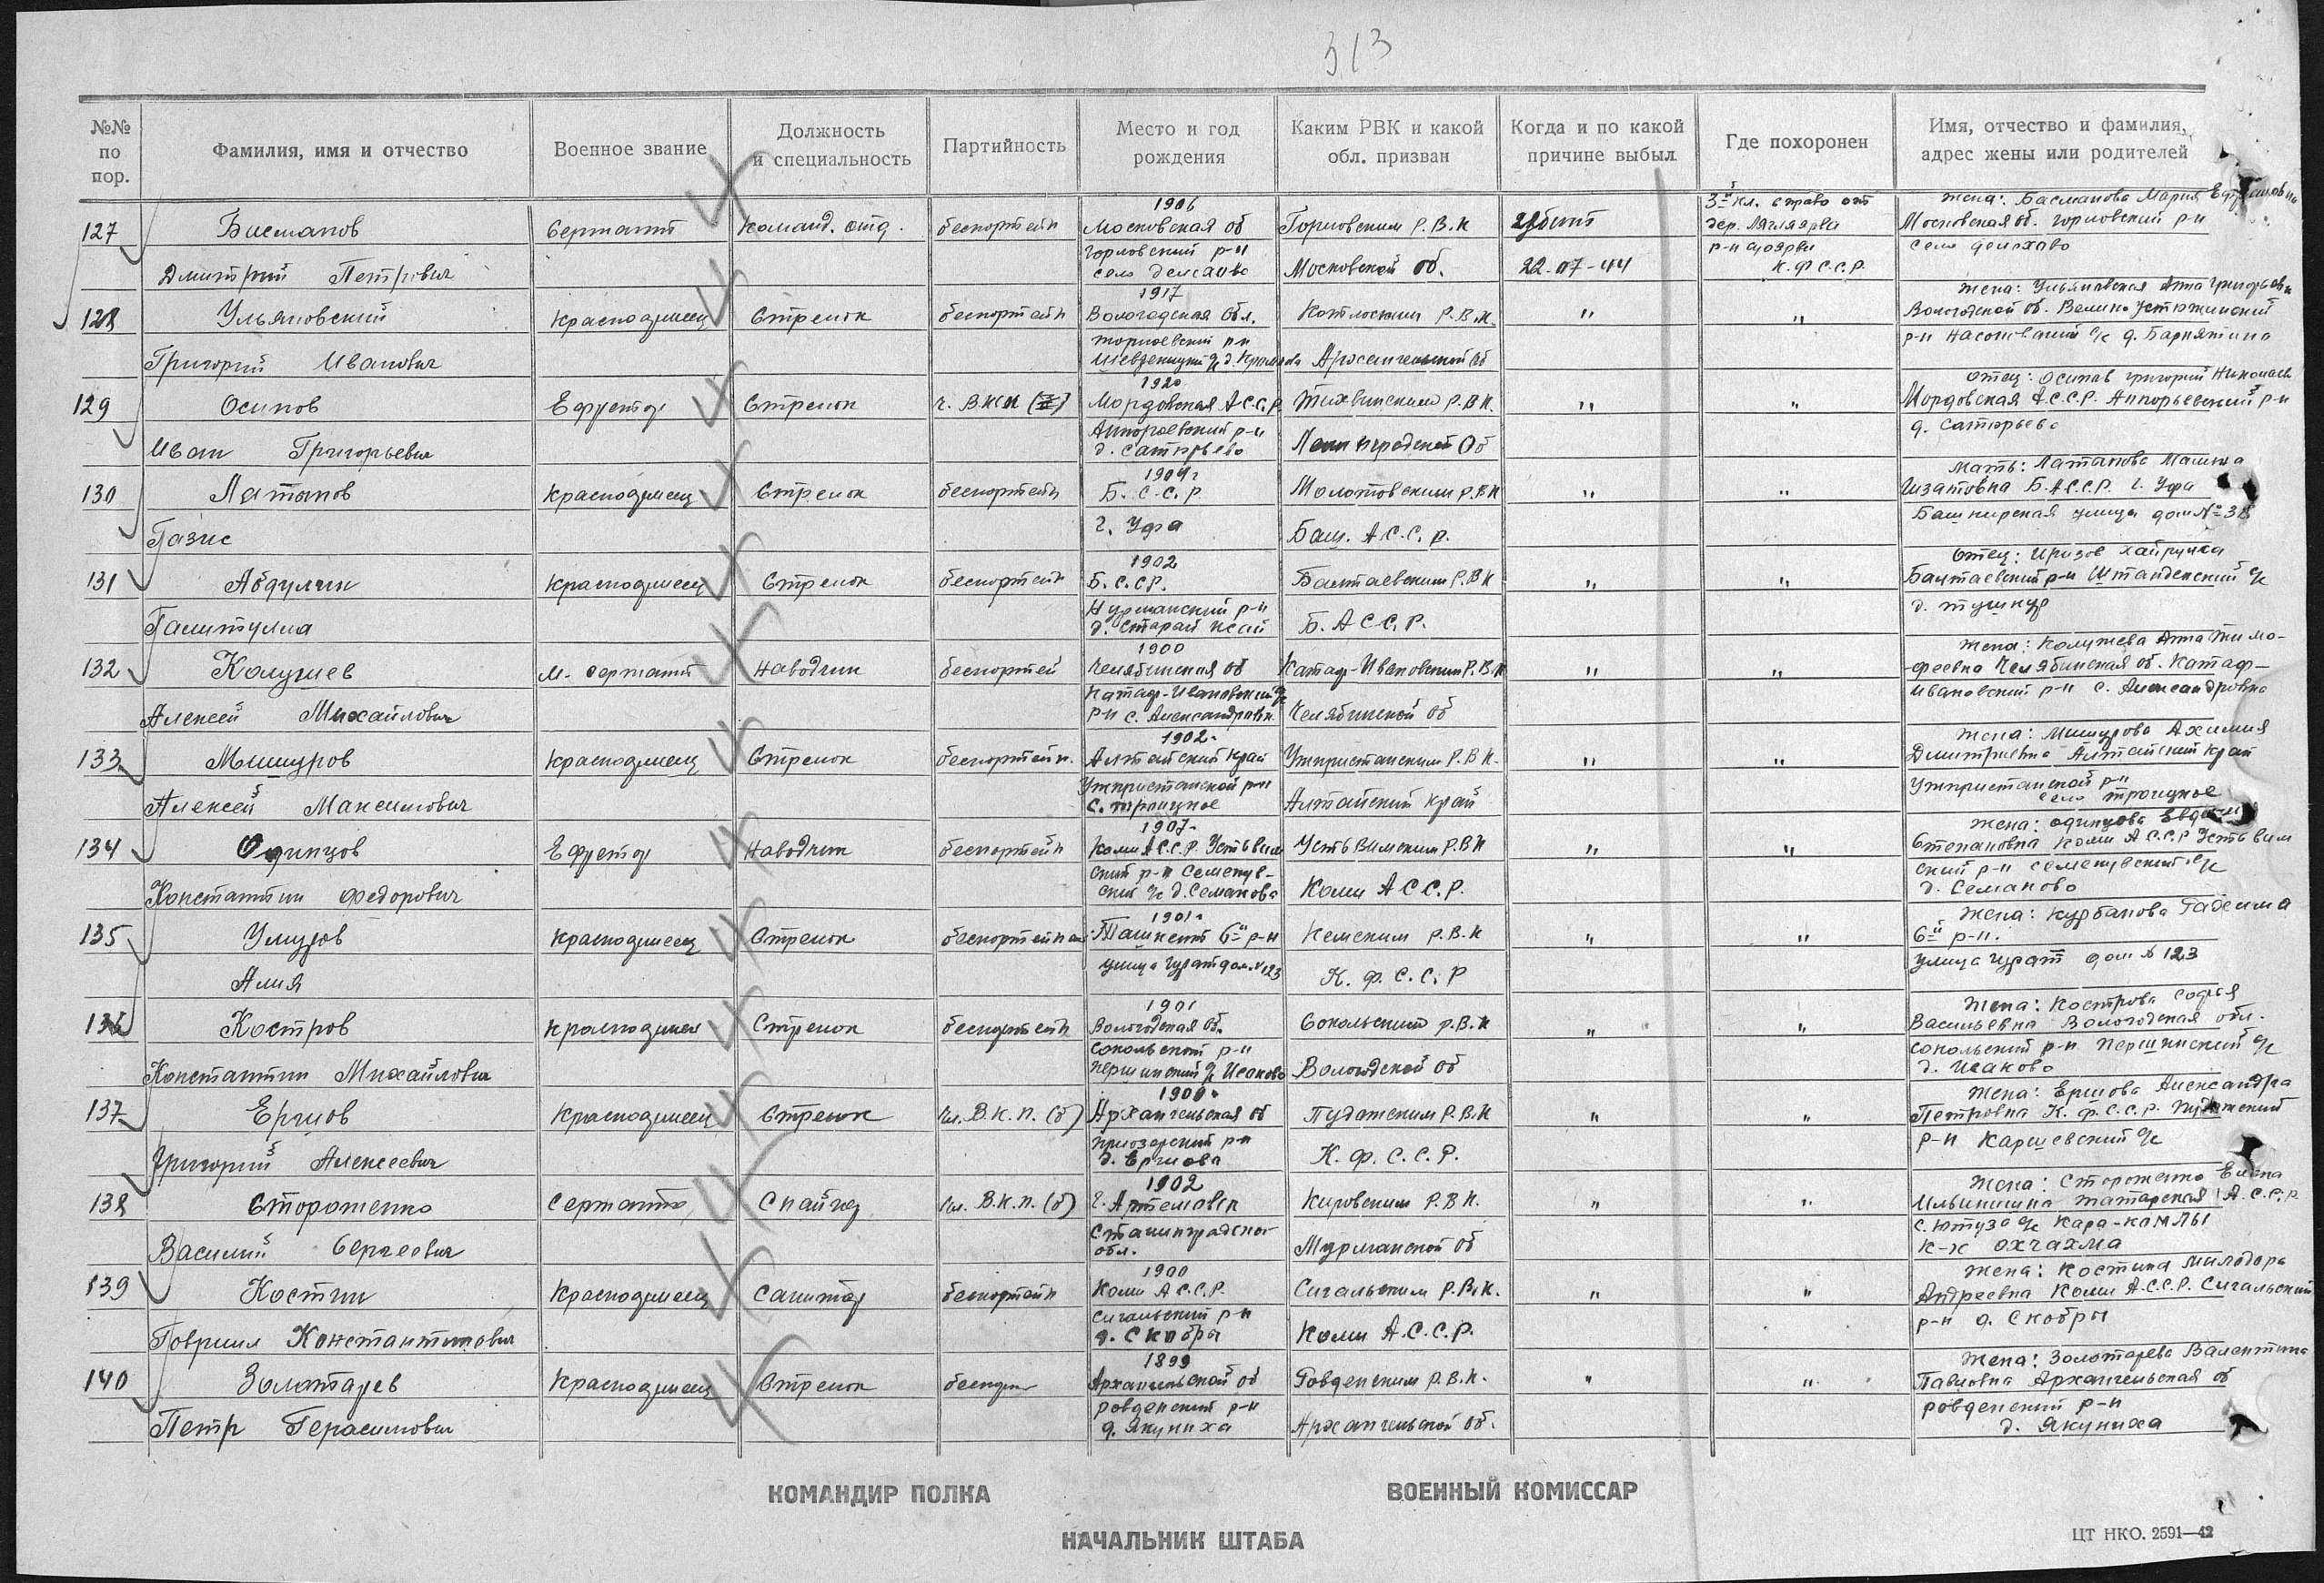 313
№№ по пор.
Фамилия, имя и отчество
Военное звание
Должность и специальность
Партийность
Место и год рождения
Каким РВК и какой обл. призван
Когда и по какой причине выбыл
Где похоронен
Имя, отчество и фамилия, адрес жены или родителей
127 Басманов Дмитрий Петрович
Сержант
Команд. отд.
беспартейн
1906 Московская об Горловский р-н село
Горловским Р.В.К Московской об.
Убит 22-07-44
3й кл. справо от дер. р-н К.Ф.С.С.Р.
Жена: Басманова Мария Московская об. Горловский р-н село
128 Ульяновский Григорий Иванович
Красноармеец
Стрелок
беспартейн
1917 Вологодская обл.
Котласским Р.В.К. Архангельской об
" "
Жена: Ульяновская Анна Григорьевн Вологодской об. Велико Устюжинский р-н с/с д.
129 Осипов Иван Григорьевич
Ефрейтор
Стрелок
1920 Мордовская А.С.С.Р. р-н д. Сатюрьево
Тихвинским Р.В.К. Ленинградской об
" "
Отец: Осипов Григорий Николаев Мордовская А.С.С.Р. р-н д. Сатюрьево
130 Латыпов Газис
Красноармеец
Стрелок
беспартейн
1904г Б.С.С.Р г. Уфа
Молотовским Р.В.К Баш. А.С.С.Р.
" "
Мать: Латыпова Б.А.С.С.Р. г. Уфа Башкирская улица дом № 38
131 Абдулин Галитулла
Красноармеец
Стрелок
беспартейн
1902 Б.С.С.Р. р-н д. Старай
Балтаевским Р.В.К Б.А.С.С.Р.
" "
Отец: Балтаевский р-н с/с д.
132 Калушев Алексей Михайлович
М. сержант
Наводчик
беспартей
1900 Челябинская об Катав-Ивановский р-н с. Александровк
Катав-Ивановским Р.В.К Челябинской об
" "
Жена: Калушева Анна Тимо-феевна Челябинская об. Катав-Ивановский р-н с. Александровка
133 Мишуров Алексей Максимович
Красноармеец
Стрелок
беспартейн.
1902. Алтайский край Ужпристанской р-н с. Троицкое
Ужпристанским Р.В.К. Алтайский край
" "
Жена: Мишурова Дмитриевна Алтайский край Ужпристанской р-н село Троицкое
134 Одинцов Константин Федорович
Ефрейтор
Наводчик
беспартейн
1907. Коми А.С.С.Р. Усть Вим ский р-н с/с д. Семаново
Усть Вимским Р.В.К Коми А.С.С.Р.
" "
Жена: Одинцова Степановна Коми А.С.С.Р Усть вим ский р-н с/с д. Семаново
135 Умуров Алия
Красноармеец
Стрелок
1901. Ташкент 6й р-н улица дом № 123
Кемским Р.В.К К.Ф.С.С.Р
" "
Жена: Курбанова 6й р-н. улица дом № 123
136 Костров Константин Михайлович
Стрелок
беспартейн
1901 Вологодская об. Сокольский р-н Першинский с/с Исаково
Сокольским Р.В.К Вологодской об
" "
Жена: Кострова Софья Васильевна Вологодская обл. Сокольский р-н Першинский с/с д. Исаково
137 Ершов Григорий Алексеевич
Красноармеец
Стрелок
Чл. В.К.П. (б)
Архангельская об Приозерский р-н д. Ершова
Пудожским Р.В.К К.Ф.С.С.Р.
" "
Жена: Ершова Александра Петровна К.Ф.С.С.Р. Пудожский р-н Каршевский с/с
138 Стороженко Василий Сергеевич
Сержант
Снайпер
Чл. В.К.П. (б)
1902 г. Артемовск Сталинградской обл.
Кировским Р.В.К. Мурманской об
" "
Жена: Стороженко Елена Ильинишна Татарская А.С.С.Р с. с/с Кара-
139 Костин Гавриил Константинович
Красноармеец
Санитар
беспартейн
1900 Коми А.С.С.Р. р-н д. Скобры
Коми А.С.С.Р.
" "
Жена: Костина Андреевна Коми А.С.С.Р. р-н д. Скобры
140 Золотарев Петр Герасимович
Красноармеец
Стрелок
1899 Архангельской об Ровденский р-н д. Якуниха
Ровденским Р.В.К. Архангельской об.
" "
Жена: Золотарева Валентина Павловна Архангельская об Ровденский р-н д. Якуниха
КОМАНДИР ПОЛКА
ВОЕННЫЙ КОМИССАР
НАЧАЛЬНИК ШТАБА
ЦТ НКО. 2591—42